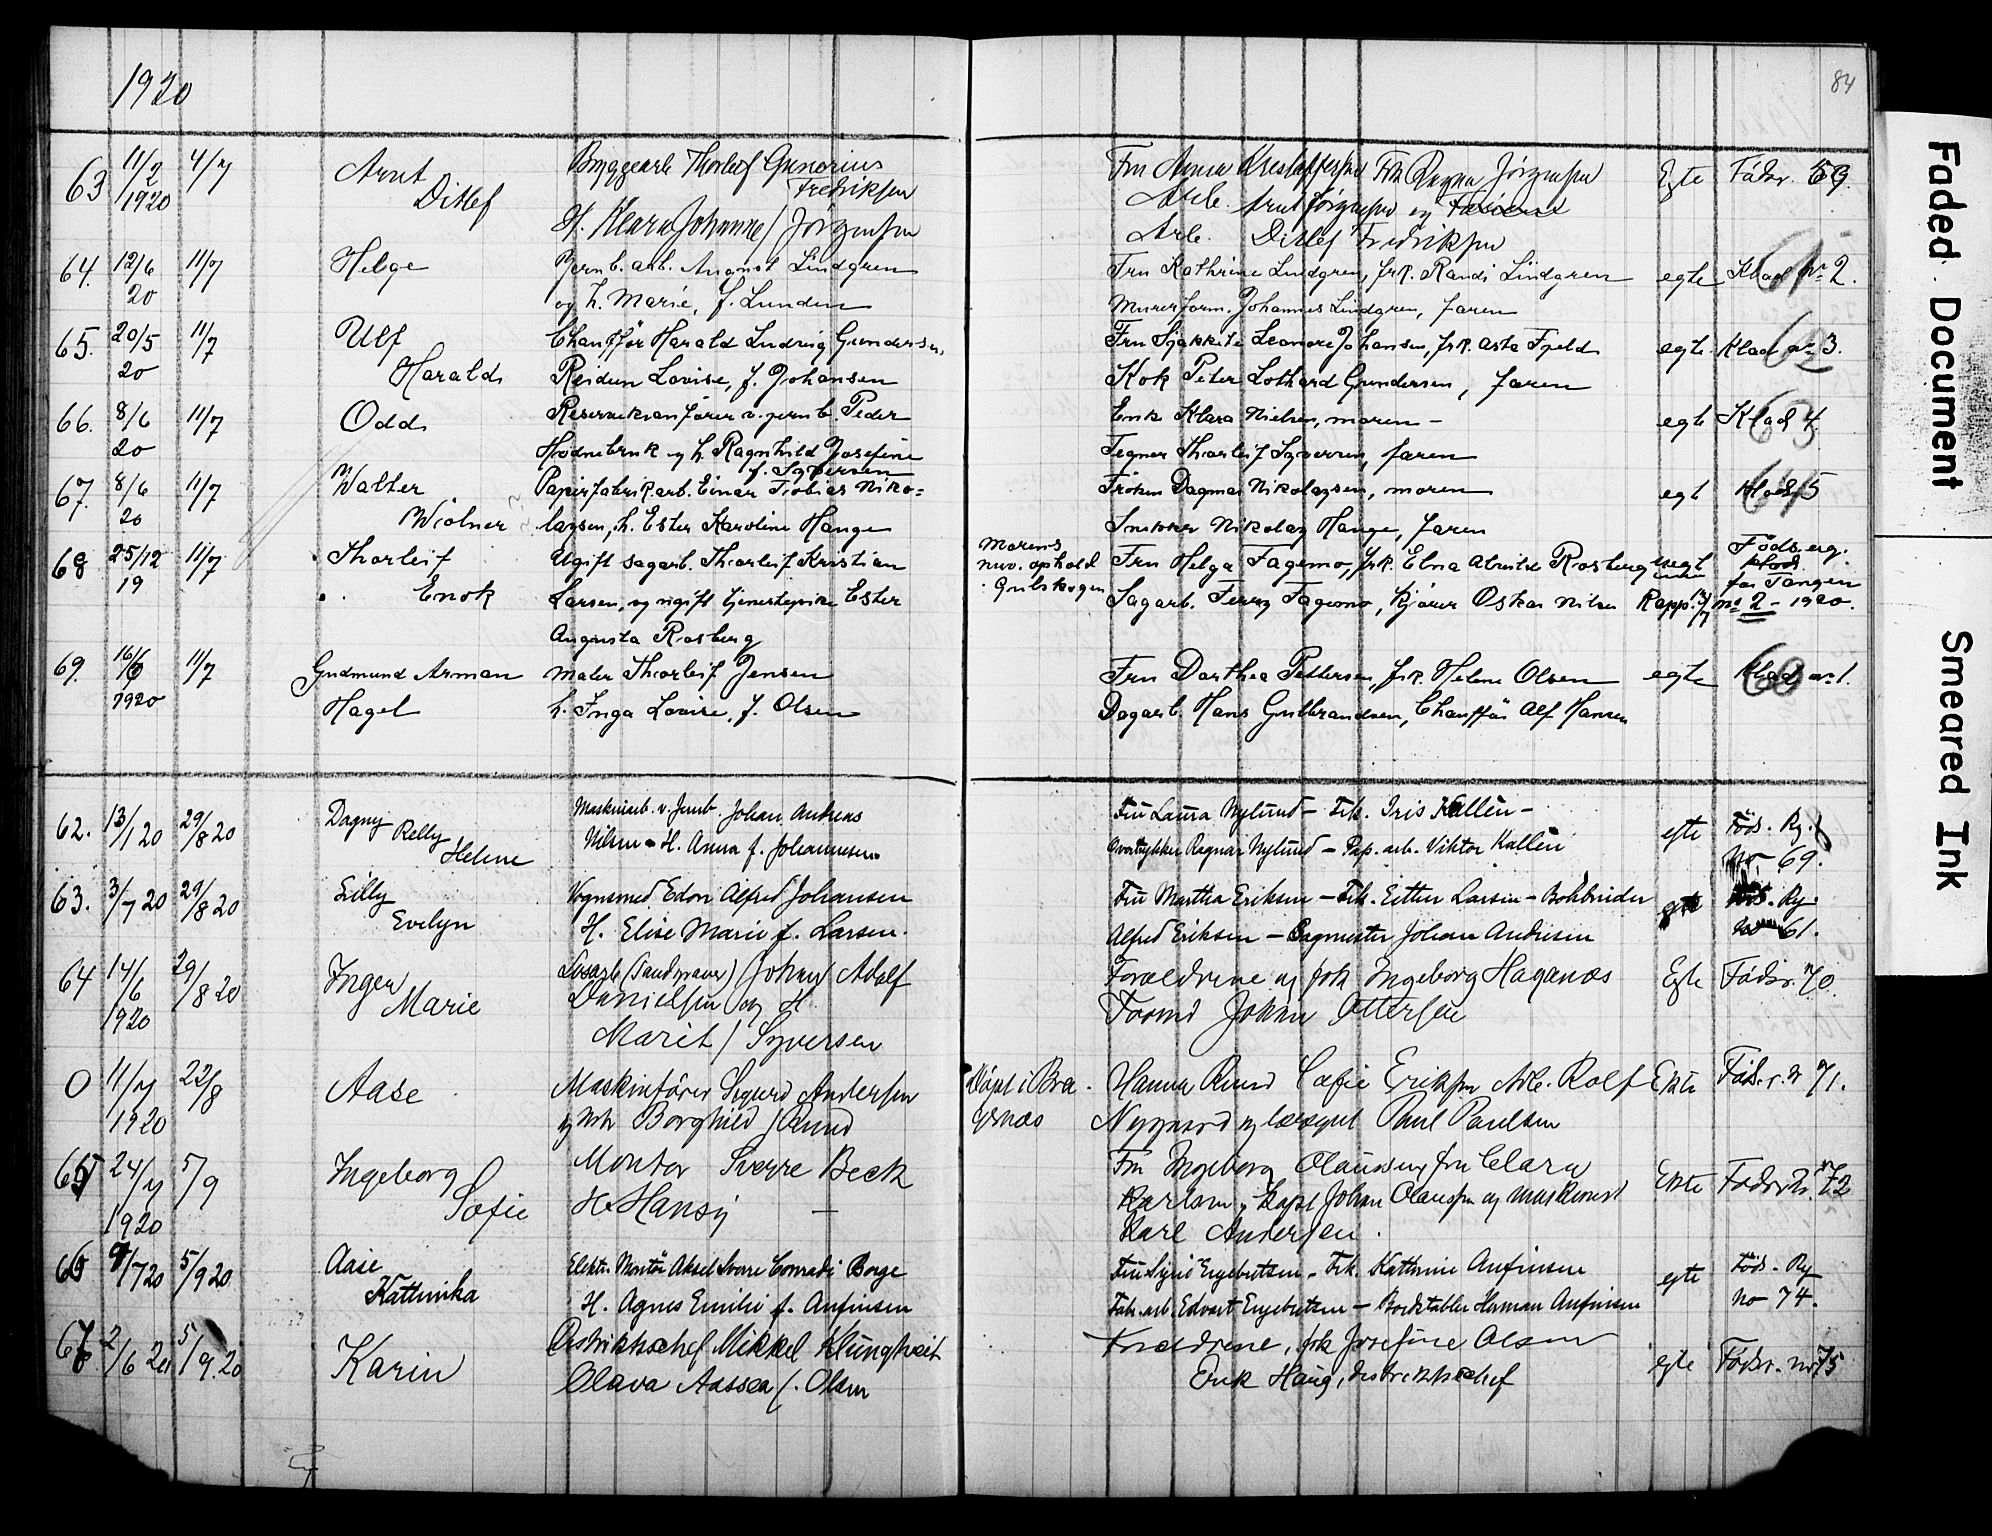 1920
84
Faded Document
Smeared Ink
63 11/2 1920 4/7 Arnt Ditlef
Byggearb Thorleif Gunerius
Fredriksen
H. Klara Johanne f. Jørgensen
Fru Anna Kristoffersen Frk Ragna Jørgensen Egte Fødsr. 59.
Arb. Arnt Jørgensen og
Arb. Ditlef Fredriksen
64. 12/6 20 11/7 Helge
Jernb. arb. August Lindgren
og h. Marie, f. Lunden
Fru Kathrine Lindgren, frk. Randi Lindgren egte Klad nr 2. 61
Murerform. Johannes Lindgren, faren
65. 20/5 20 11/7 Ulf Harald
Chauffør Harald Ludvig Gundersen,
Reidun Lovise, f. Johansen
Fru Leonore Johansen, frk. Asta Fjeld egte. Klad nr 3. 62
Kok Peter Lothard Gundersen, faren
66. 8/6 20 11/7 Odd
v. jernb. Peder
Hodnebruk og h. Ragnhild Josefine
f. Syversen
Enk Klara Nielsen, moren - egte Klad 4 63
Tegner Thorleif Syversen, faren
67. 8/6 20 11/7 Walter Wiolner
Papirfabrikarb. Einar Tobias Niko=
laysen, h. Ester Karoline Hauge
Frøken Dagmar Nikolaysen, moren egt Klad 5 64
Snekker Nikolay Hauge, faren
68 25/12 19 11/7 Thorleif Enok
Ugift sagarb. Thorleif Kristian
Larsen, og ugift tjenestepike Ester
Augusta Rosberg
Morens
nuv. ophold
Gulskogen
Fru Helga Fagermo, frk. Elna Alvilde Rosberg uegt
Sagarb. Ferry Fagermo, kjører Oskar Nilsen Rapp. 12/7
Føds.reg.
for Tangen
no 2 - 1920.
69. 16/6 1920 11/7 Gudmund Arman Hagel
Maler Thorleif Jensen
h. Inga Lovise, f. Olsen
Fru Dorthea Pettersen, frk. Helene Olsen egte Klad nr 1. 60
Dagarb. Hans Gulbrandsen, Chauffør Alf Hansen
62. 13/1 20 29/8 20 Dagny Relly Helene
Maskinarb. v. Jernb. Johan Andreas
Nilsen - H. Anna f. Johannesen
Fru Laura Nylund - Frk. Iris Kallèn - egte Føds. Rg.
Ragnar Nylund - Pap. arb. Viktor Kallèn No 69.
63. 3/7 20 29/8 20 Lilly Evelyn
Vognsmed Edon Alfred Johansen
H. Elise Marie f. Larsen.
Fru Martha Eriksen - Frk. Esther Larsen - Bokbinder egte Føds. Rg.
Alfred Eriksen - Sagmester Johan Andresen no 61.
64 14/6 1920 29/8 20 Inger Marie
Løsarb (Sandgraver) Johan Adolf
Danielsen og H.
Marit f Syversen
Forældrene og frk Ingeborg Haganæs Egte Fødsr. 70.
Formd Johan Ottersen
0 11/7 1920 22/8 Aase
Maskinfører Sigurd Andersen
og h Borghild f Ruud
Døpt i Bra-
gernæs
Hanna Ruud Cæfie Eriksen Arb. Rolf Ekte Føds.r. N 71.
Nygaard og læregut Paul Paulsen
65 24/7 1920 5/9 Ingeborg Sofie
Montør Sverre Beck
H. Hansy -
Fru Ingeborg Olaussen, fru Clara Ekte Fødsr. Nr. 72
Karlsen, Kapt Johan Olaussen og maskinist
Karl Andersen.
66 9/7 20 5/9 20 Aase Kathinka
Elektr. Montør Aksel Sverre Conradi Borge
H. Agnes Emilie f. Anfinsen
Fru Sigrid Engebretsen - Frk. Kathrine Anfinsen egte Føds. Rg
Fabr. arb. Edvart Engebretsen - Bordstabler Herman Anfinsen no 74.
67 2/6 20 5/9.20 Karin
Distriktschef Mikkel Klungtveit
Olava Aassea f. Olsen
Forældrene, frk Josefine Olsen egte Fødsr. nr 75
Erik Haug, distriktschef